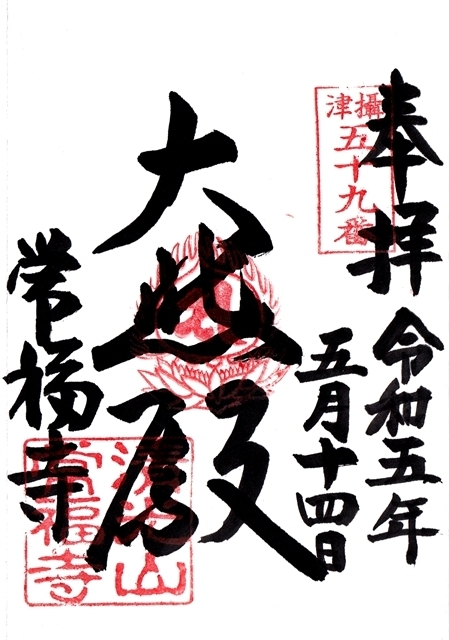 奉拝
攝津
五十九番
令和五年
五月十四日
大悲殿
常福寺
常福寺